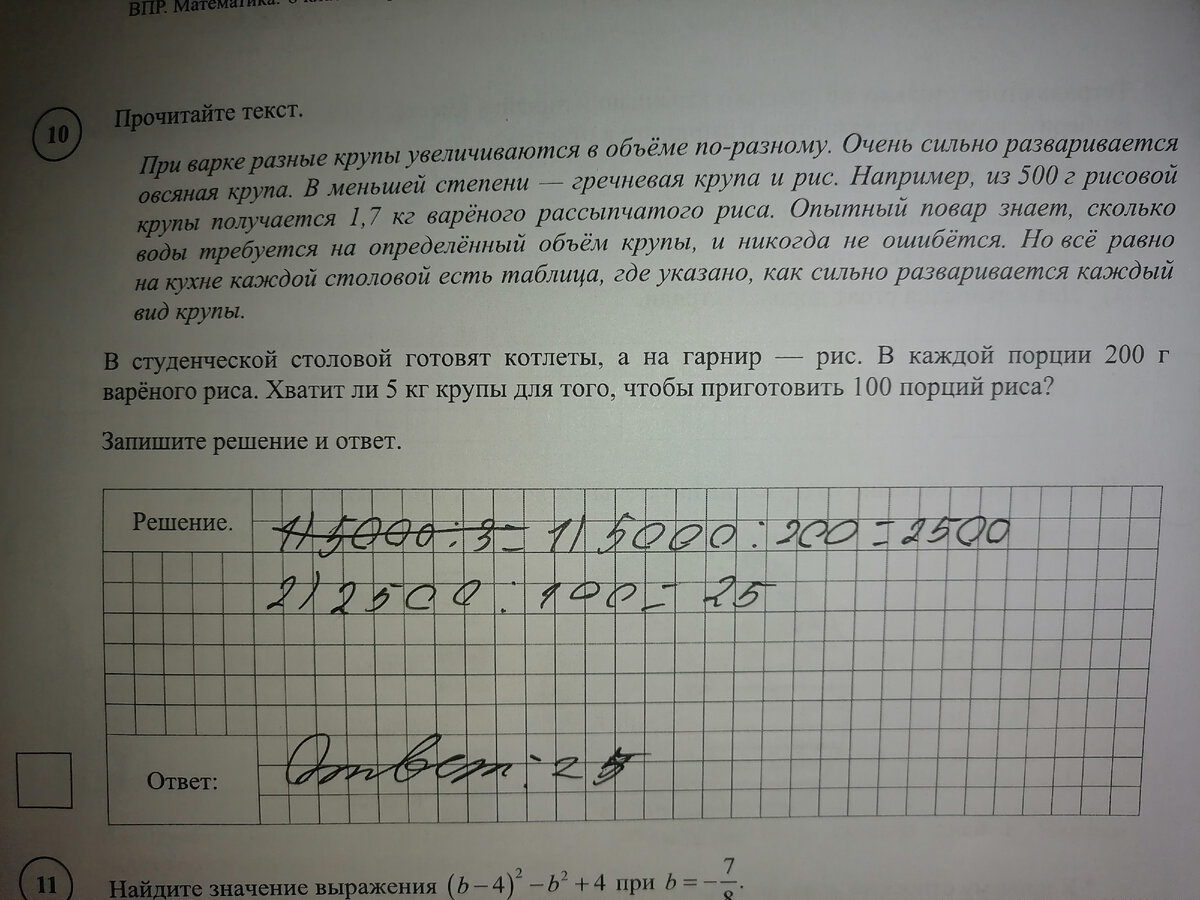 ВПР. Математика. 8
10
Прочитайте текст.
При варке разные крупы увеличиваются в объёме по-разному. Очень сильно разваривается
овсяная крупа. В меньшей степени — гречневая крупа и рис. Например, из 500 г рисовой
крупы получается 1,7 кг варёного рассыпчатого риса. Опытный повар знает, сколько
воды требуется на определённый объём крупы, и никогда не ошибётся. Но всё равно
на кухне каждой столовой есть таблица, где указано, как сильно разваривается каждый
вид крупы.
В студенческой столовой готовят котлеты, а на гарнир — рис. В каждой порции 200 г
варёного риса. Хватит ли 5 кг крупы для того, чтобы приготовить 100 порций риса?
Запишите решение и ответ.
Решение. 1) 5000 : 3 = 1) 5000 : 200 = 2500
2) 2500 : 100 = 25
Ответ: Ответ: 25
11
Найдите значение выражения (b − 4)² − b² + 4 при b = −7/8.